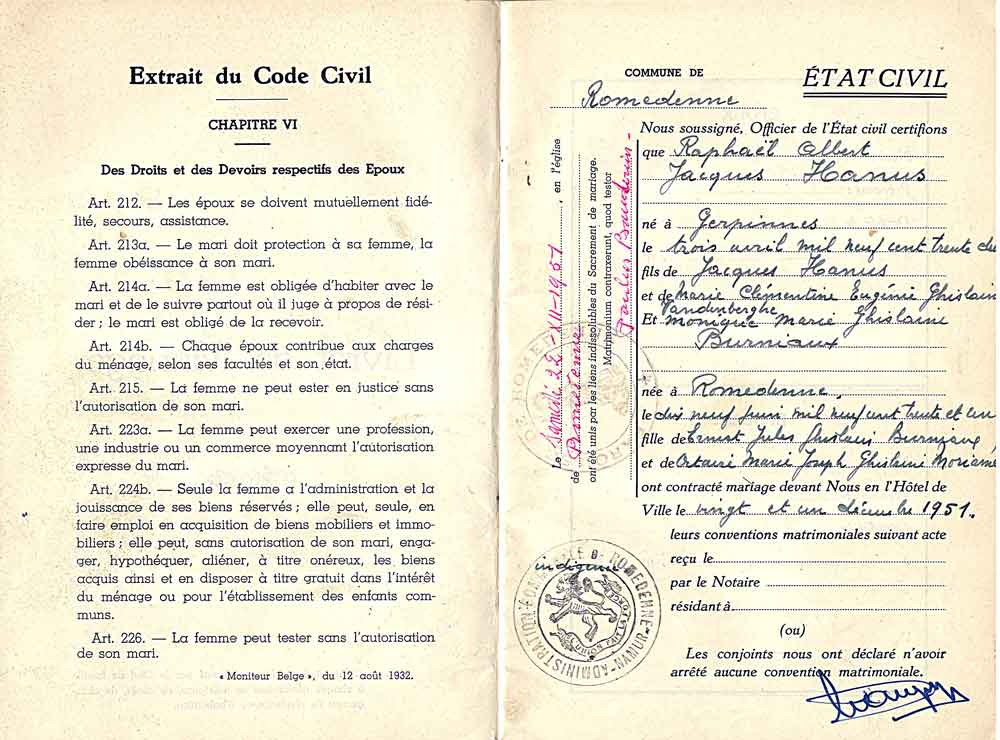 Extrait du Code Civil
CHAPITRE VI
Des Droits et des Devoirs respectifs des Epoux
Art. 212. — Les époux se doivent mutuellement fidé-
lité, secours, assistance.
Art. 213a. — Le mari doit protection à sa femme, la
femme obéissance à son mari.
Art. 214a. — La femme est obligée d'habiter avec le
mari et de le suivre partout où il juge à propos de rési-
der ; le mari est obligé de la recevoir.
Art. 214b. — Chaque époux contribue aux charges
du ménage, selon ses facultés et son état.
Art. 215. — La femme ne peut ester en justice sans
l'autorisation de son mari.
Art. 223a. — La femme peut exercer une profession,
une industrie ou un commerce moyennant l'autorisation
expresse du mari.
Art. 224b. — Seule la femme a l'administration et la
jouissance de ses biens réservés ; elle peut, seule, en
faire emploi en acquisition de biens mobiliers et immo-
biliers ; elle peut, sans autorisation de son mari, enga-
ger, hypothéquer, aliéner, à titre onéreux, les biens
acquis ainsi et en disposer à titre gratuit dans l'intérêt
du ménage ou pour l'établissement des enfants com-
muns.
Art. 226. — La femme peut tester sans l'autorisation
de son mari.
« Moniteur Belge », du 12 août 1932.
COMMUNE DE
ÉTAT CIVIL
Romedenne
Nous soussigné, Officier de l'État civil certifions
que Raphaël Albert
Jacques Hanus
né à Gerpinnes
le trois avril mil neuf cent trente
fils de Jacques Hanus
et de Marie Clémentine Eugénie Ghislaine
Vandenberghe
Et Monique Marie Ghislaine
Burniaux
née à Romedenne,
le dix neuf juin mil neuf cent trente et un
fille de Ernest Jules Ghislain Burniaux,
et de Octavie Marie Joseph Ghislaine Moriamé
ont contracté mariage devant Nous en l'Hôtel de
Ville le vingt et un décembre 1951.
leurs conventions matrimoniales suivant acte
reçu le
par le Notaire
résidant à
(ou)
Les conjoints nous ont déclaré n'avoir
arrêté aucune convention matrimoniale.
Le Samedi 22-XII-1951, en l'église
de Romedenne
ont été unis par les liens indissolubles du Sacrement de mariage.
Matrimonium contraxerunt, quod testor
ADMINISTRATION COMMUNALE DE ROMEDENNE-NAMUR
L'UNION FAIT LA FORCE